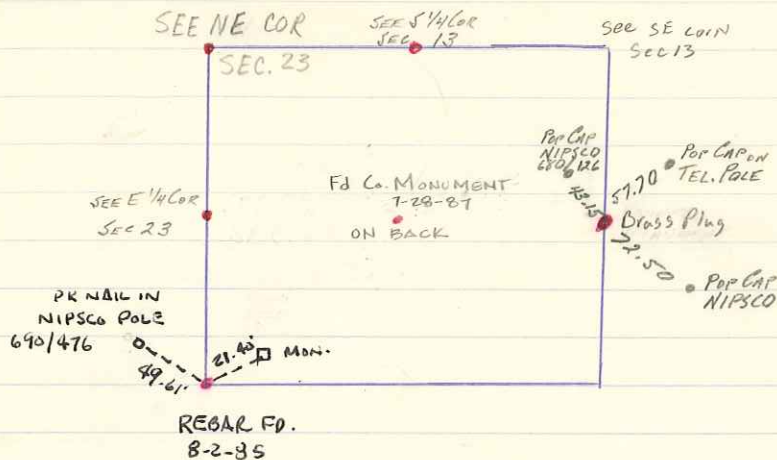 SEE NE COR
SEC. 23
SEE S 1/4 COR
SEC 13
SEE SE CORN
SEC 13
POP CAP
NIPSCO
680/126
43.15
57.70
POP CAP ON
TEL. POLE
Brass Plug
72.50
POP CAP
NIPSCO
SEE E 1/4 COR
SEC 23
Fd Co. MONUMENT
7-28-87
ON BACK
PK NAIL IN
NIPSCO POLE
690/476
49.61'
21.40'
MON.
REBAR FD.
8-2-85